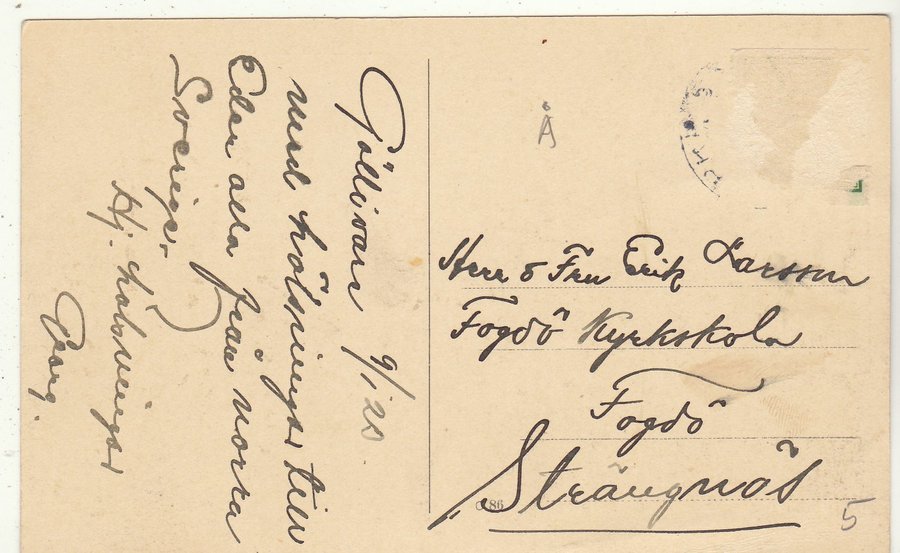 Göllivara 9/1 20
med hälsningar till
Eder alla från norra
Sverige.
Hj. hälsningar
Georg.
Å
Herr o Fru Erik Larsson
Fogdö Kyrkskola
Fogdö
Strängnäs
86
5